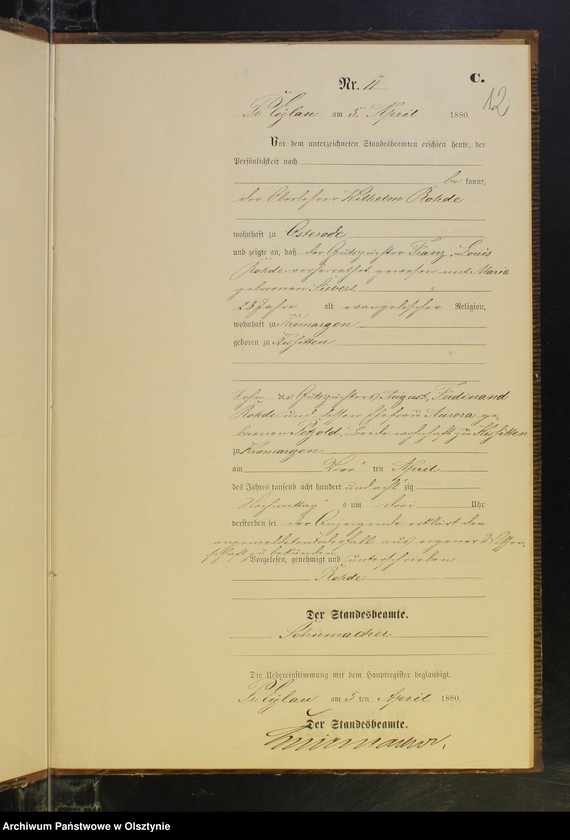 Nr. 11
C.
12
Pr. Eylau am 5. April 1880.
Vor dem unterzeichneten Standesbeamten erschien heute, der
Persönlichkeit nach
be kannt,
der Oberlehrer Wilhelm Rohde
wohnhaft zu Osterode
und zeigte an, daß der Gutspächter Franz, Louis
Rohde verheirathet gewesen mit Maria
geborenen Siebert
28 Jahre alt evangelischer Religion,
wohnhaft zu Kromargen
geboren zu Kissitten
Sohn des Gutspächters August, Ferdinand
Rohde und dessen Ehefrau Aurora ge,
borenen Petzold, beide wohnhaft zu Kissitten
zu Kromargen
am Vier ten April
des Jahres tausend acht hundert und acht zig
Nachmittag s um drei Uhr
verstorben sei, der Anzeigende erklärt den
angemeldeten Todesfall aus eigener Wissen,
schaft zu bekunden
Vorgelesen, genehmigt und unterschrieben
Rohde
Der Standesbeamte.
Schirmacher.
Die Uebereinstimmung mit dem Hauptregister beglaubigt.
Pr. Eylau am 5 ten April 1880.
Der Standesbeamte.
Schirmacher.
Archiwum Państwowe w Olsztynie